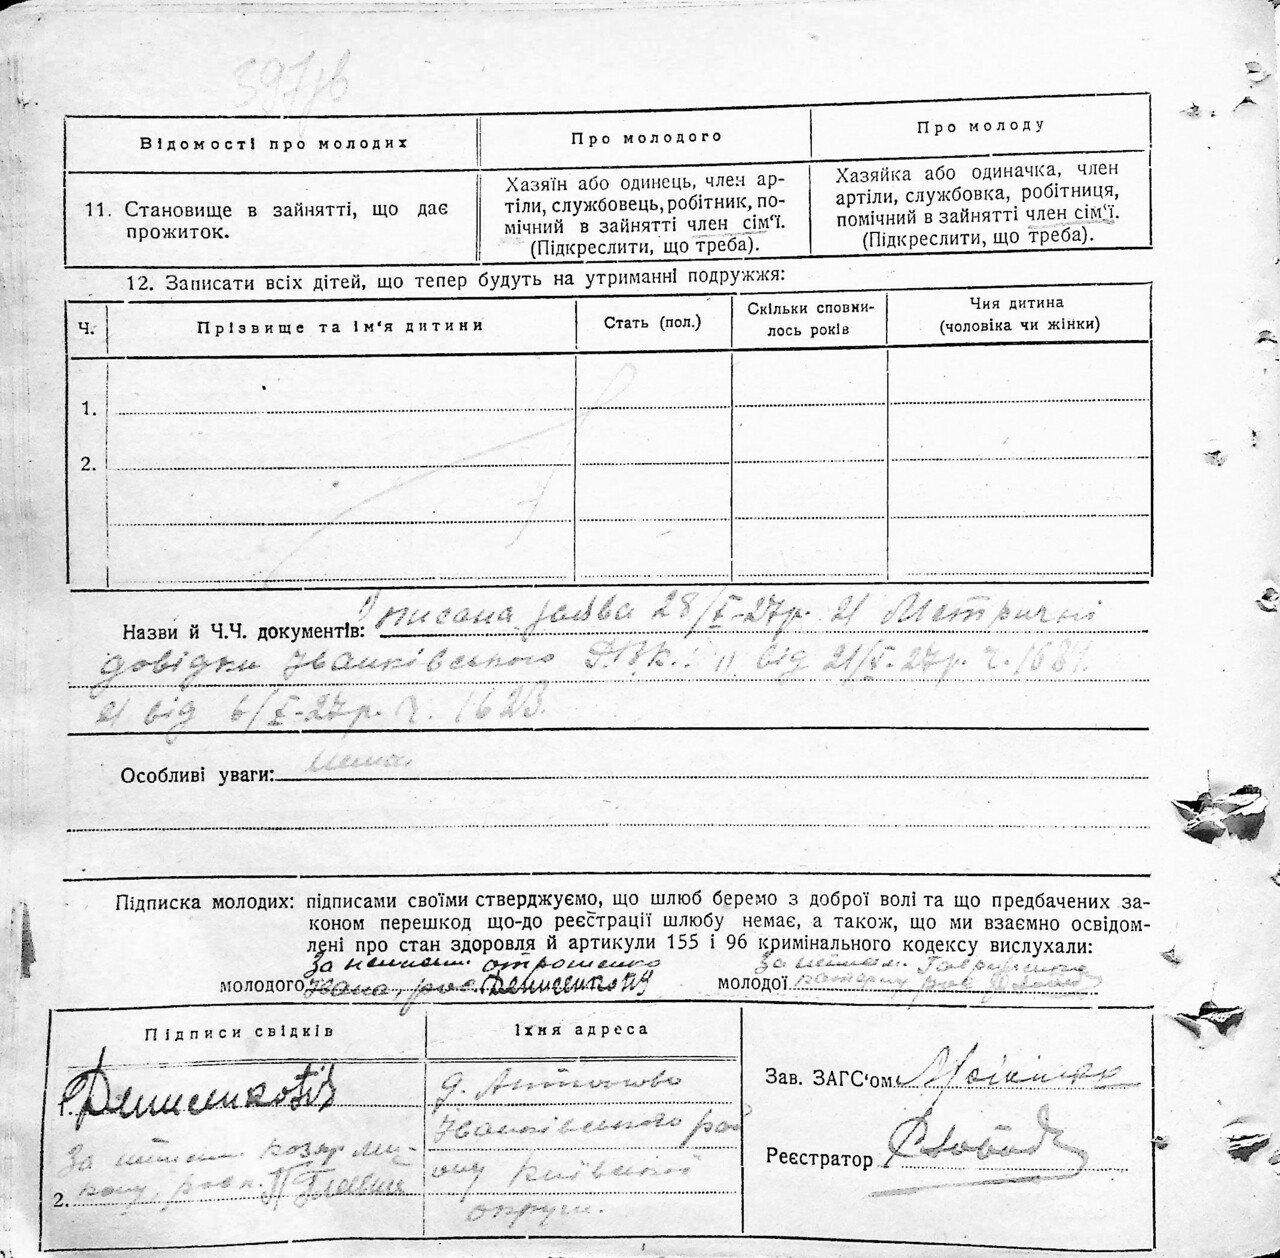 397зв
Відомості про молодих
Про молодого
Про молоду
11. Становище в зайнятті, що дає
прожиток.
Хазяїн або одинець, член ар-
тіли, службовець, робітник, по-
мічний в зайнятті член сім‘ї.
(Підкреслити, що треба).
Хазяйка або одиначка, член
артіли, службовка, робітниця,
помічний в зайнятті член сім‘ї.
(Підкреслити, що треба).
12. Записати всіх дітей, що тепер будуть на утриманні подружжя:
Ч.
Прізвище та ім‘я дитини
Стать (пол.)
Скільки сповни-
лось років
Чия дитина
(чоловіка чи жінки)
1.
2.
Назви й Ч.Ч. документів: Писана заява 28/X-27р. Метричні
довідки Іванківського від 21/X-27р. ч. 1684.
від 6/X-27р. ч. 1623.
Особливі уваги: Нема
Підписка молодих: підписами своїми стверджуємо, що шлюб беремо з доброї волі та що предбачених за-
коном перешкод що-до реєстрації шлюбу немає, а також, що ми взаємно освідом-
лені про стан здоровля й артикули 155 і 96 кримінального кодексу вислухали:
За неписьм. Отрошенко
молодого Івана, роз. Денисенко
За неписьм.
молодої Катерину роз.
Підписи свідків
Їхня адреса
Денисенко
За неписьм.
2.
Іванківського рай
ону Київської
округи.
Зав. ЗАГС‘ом
Реєстратор